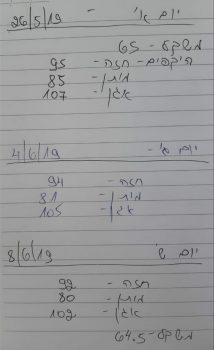 26/5/19 - יום א'
משקל - 65
היקפים - חזה - 95
מותן - 85
אגן - 107
4/6/19 יום ג' -
חזה - 94
מותן - 81
אגן - 105
8/6/19 יום ש'
חזה - 92
מותן - 80
אגן - 102
משקל - 64.5